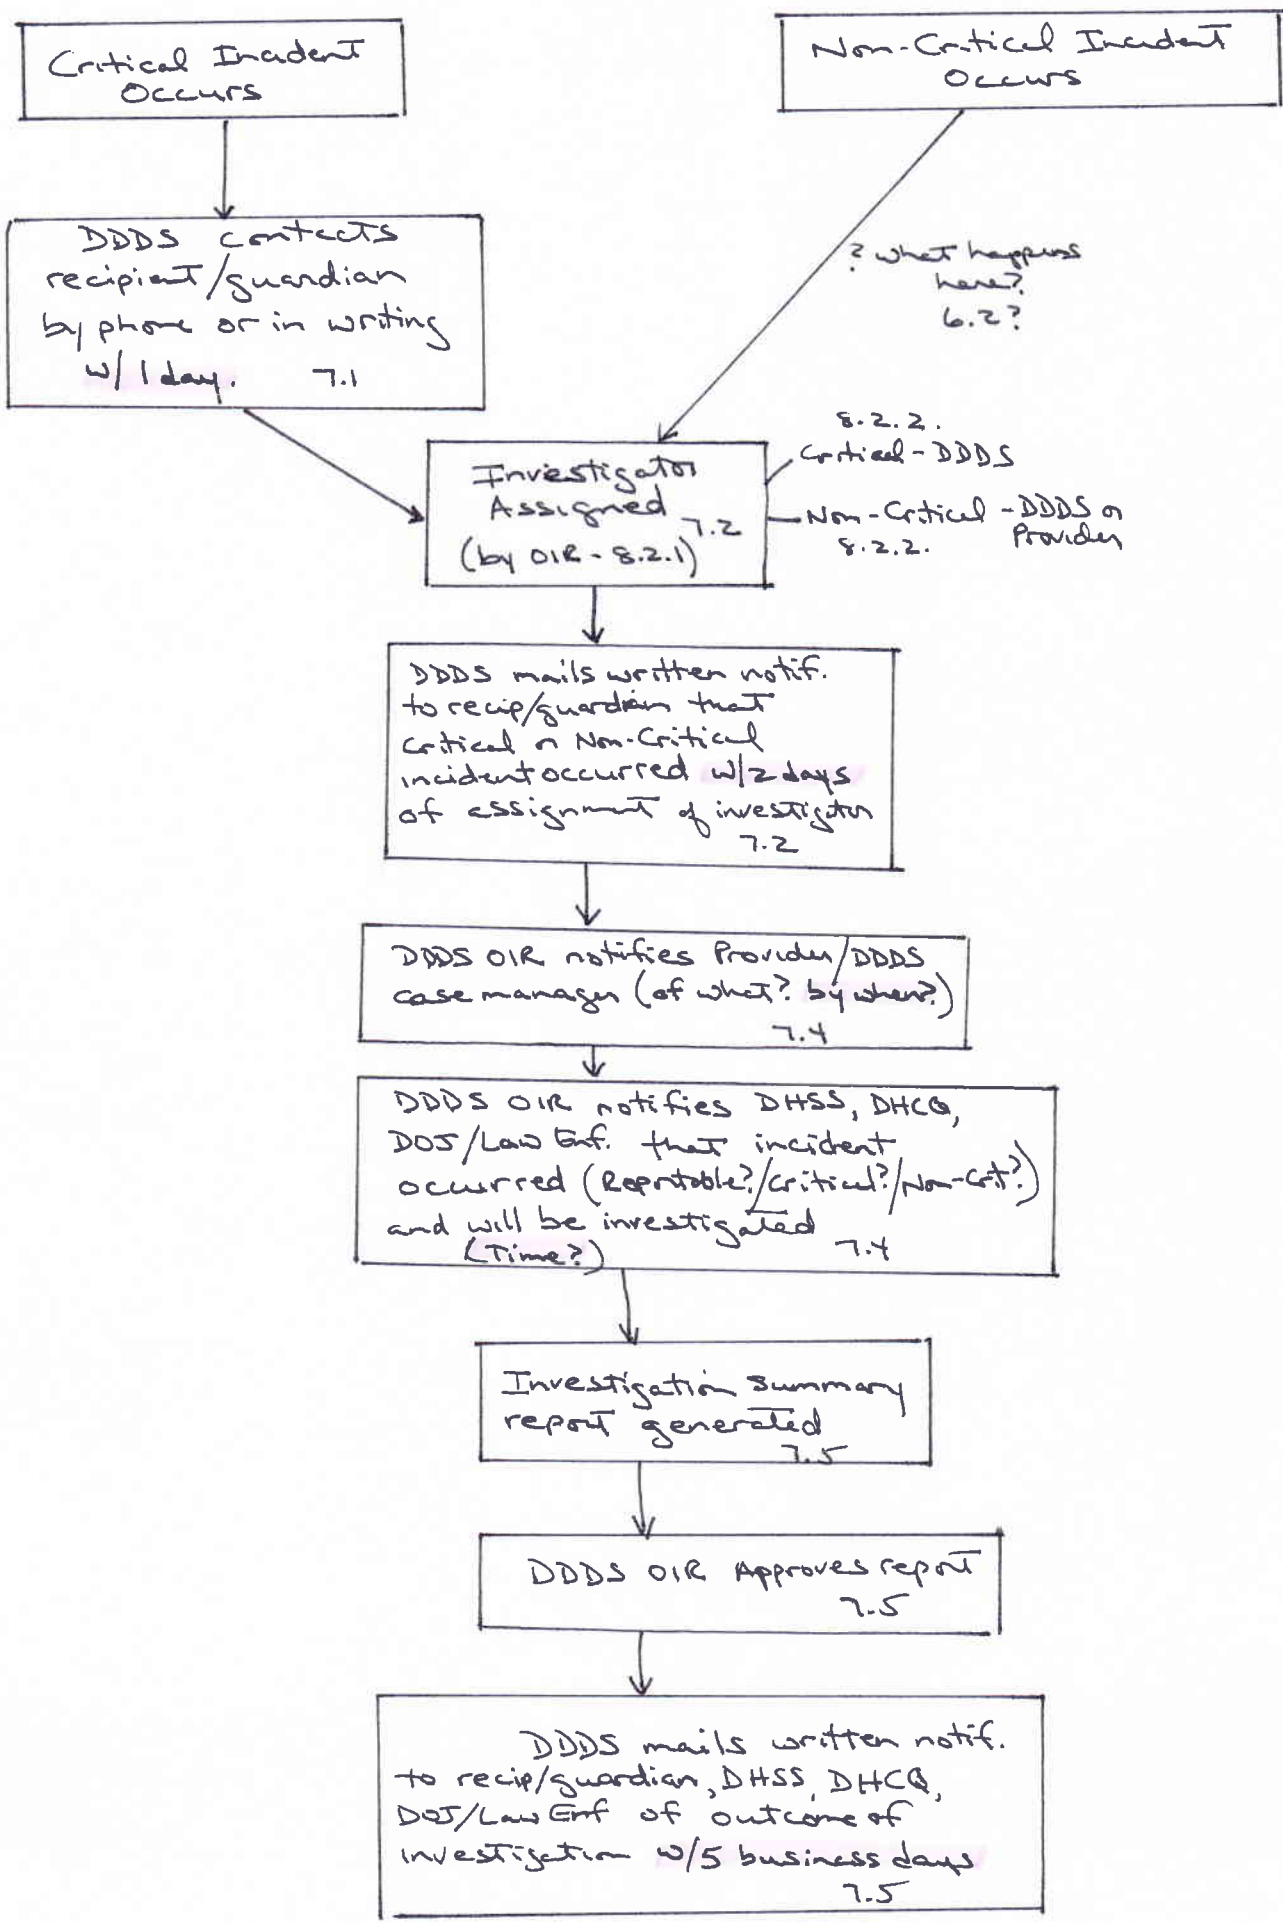 Critical Incident
Occurs
Non-Critical Incident
Occurs
DDDS contacts
recipient/guardian
by phone or in writing
w/ 1 day. 7.1
? what happens
here?
6.2?
Investigator
Assigned
7.2
(by OIR - 8.2.1)
8.2.2.
Critical - DDDS
Non-Critical - DDDS or
Provider
8.2.2.
DDDS mails written notif.
to recip/guardian that
Critical or Non-Critical
incident occurred w/2 days
of assignment of investigator
7.2
DDDS OIR notifies Provider/DDDS
case manager (of what? by when?)
7.4
DDDS OIR notifies DHSS, DHCQ,
DOJ/Law Enf. that incident
occurred (Reportable?/Critical?/Non-Crit?)
and will be investigated
(Time?) 7.4
Investigation summary
report generated
7.5
DDDS OIR Approves report
7.5
DDDS mails written notif.
to recip/guardian, DHSS, DHCQ,
DOJ/Law Enf of outcome of
investigation w/5 business days
7.5